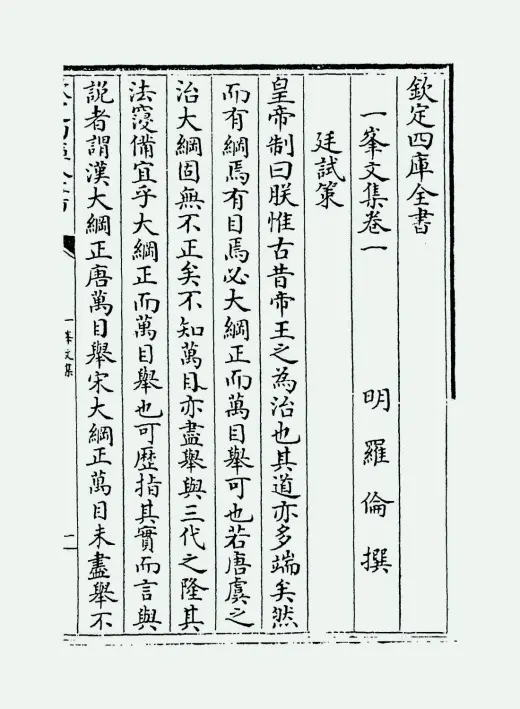 欽定四庫全書
一峯文集卷一
明羅倫撰
廷試策
皇帝制曰朕惟古昔帝王之為治也其道亦多端矣然
而有綱焉有目焉必大綱正而萬目舉可也若唐虞之
治大綱固無不正矣不知萬目亦盡舉與三代之隆其
法寖備宜乎大綱正而萬目舉也可歴指其實而言與
説者謂漢大綱正唐萬目舉宋大綱正萬目未盡舉不
一峯文集